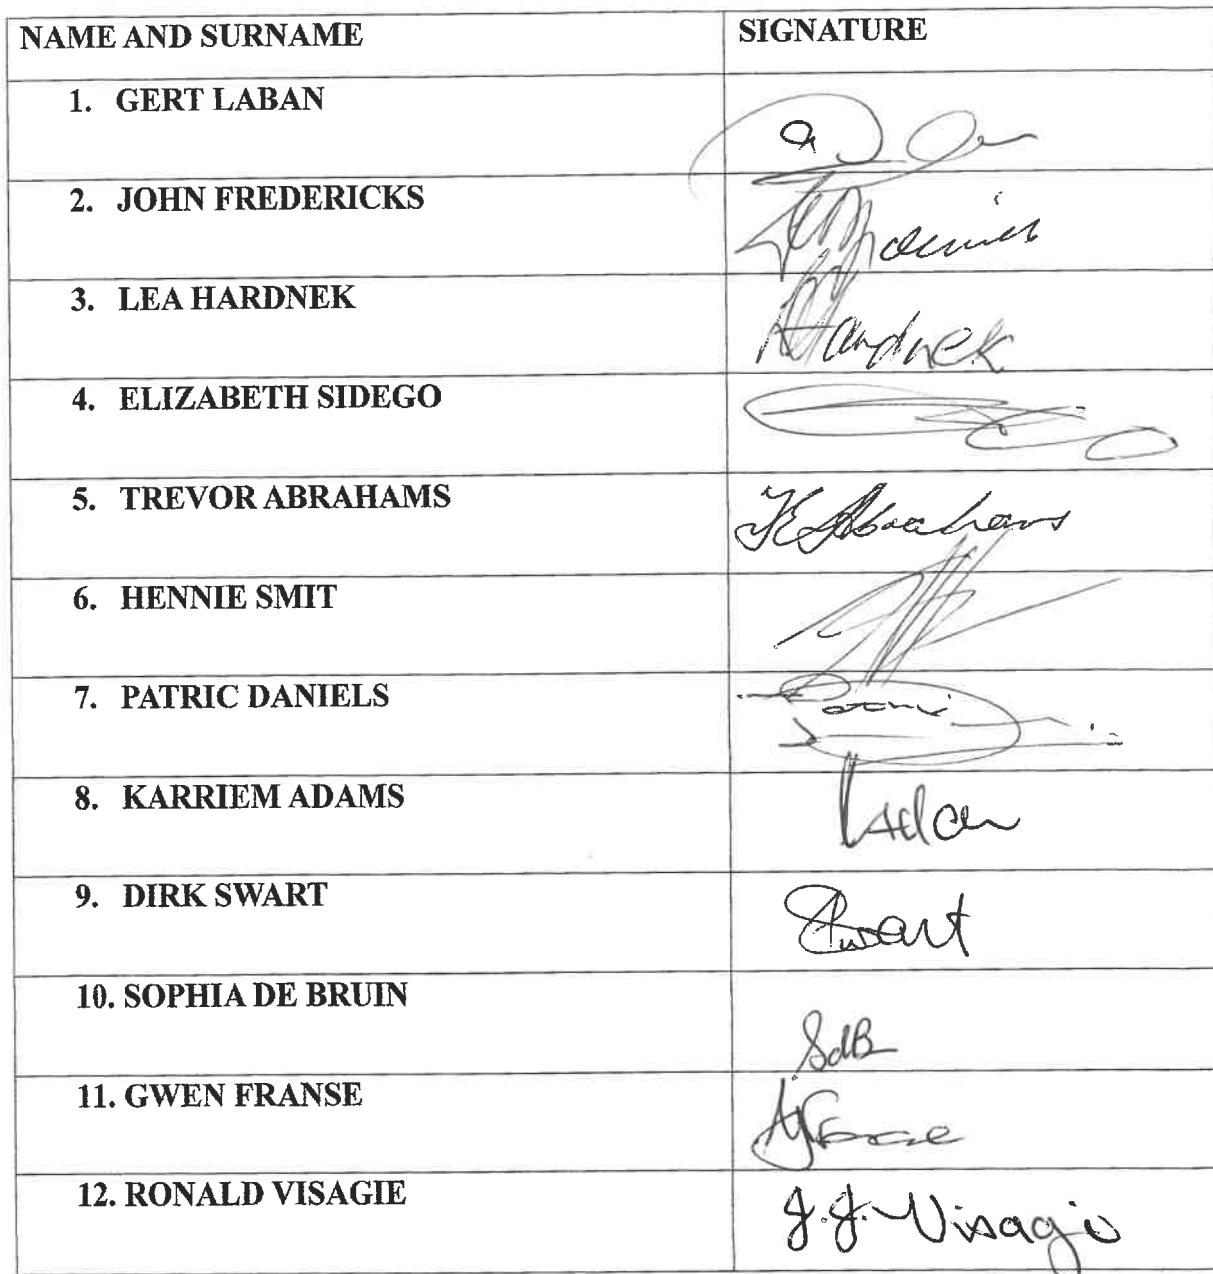 NAME AND SURNAME SIGNATURE
1. GERT LABAN
2. JOHN FREDERICKS
3. LEA HARDNEK Hardnek
4. ELIZABETH SIDEGO
5. TREVOR ABRAHAMS Abrahams
6. HENNIE SMIT
7. PATRIC DANIELS
8. KARRIEM ADAMS
9. DIRK SWART Swart
10. SOPHIA DE BRUIN SdB
11. GWEN FRANSE
12. RONALD VISAGIE J.J. Visagie